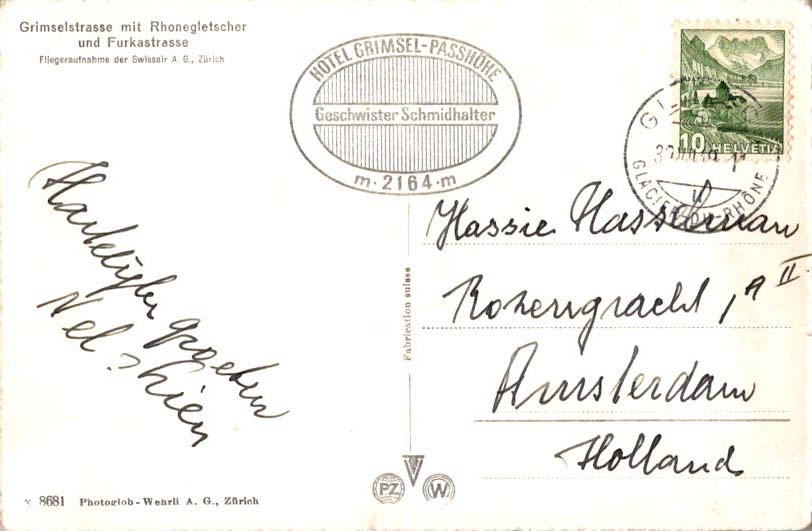 Grimselstrasse mit Rhonegletscher
und Furkastrasse
Fliegeraufnahme der Swissair A. G., Zürich
HOTEL GRIMSEL-PASSHÖHE
Geschwister Schmidhalter
m · 2164 · m
10 HELVETIA
GLACIER-DU-RHÔNE
Hartelijke groeten
Nel
Fabrication suisse
Hassie Hasselman
Rozengracht
Amsterdam
Holland
PZ W
8681 Photoglob-Wehrli A. G., Zürich